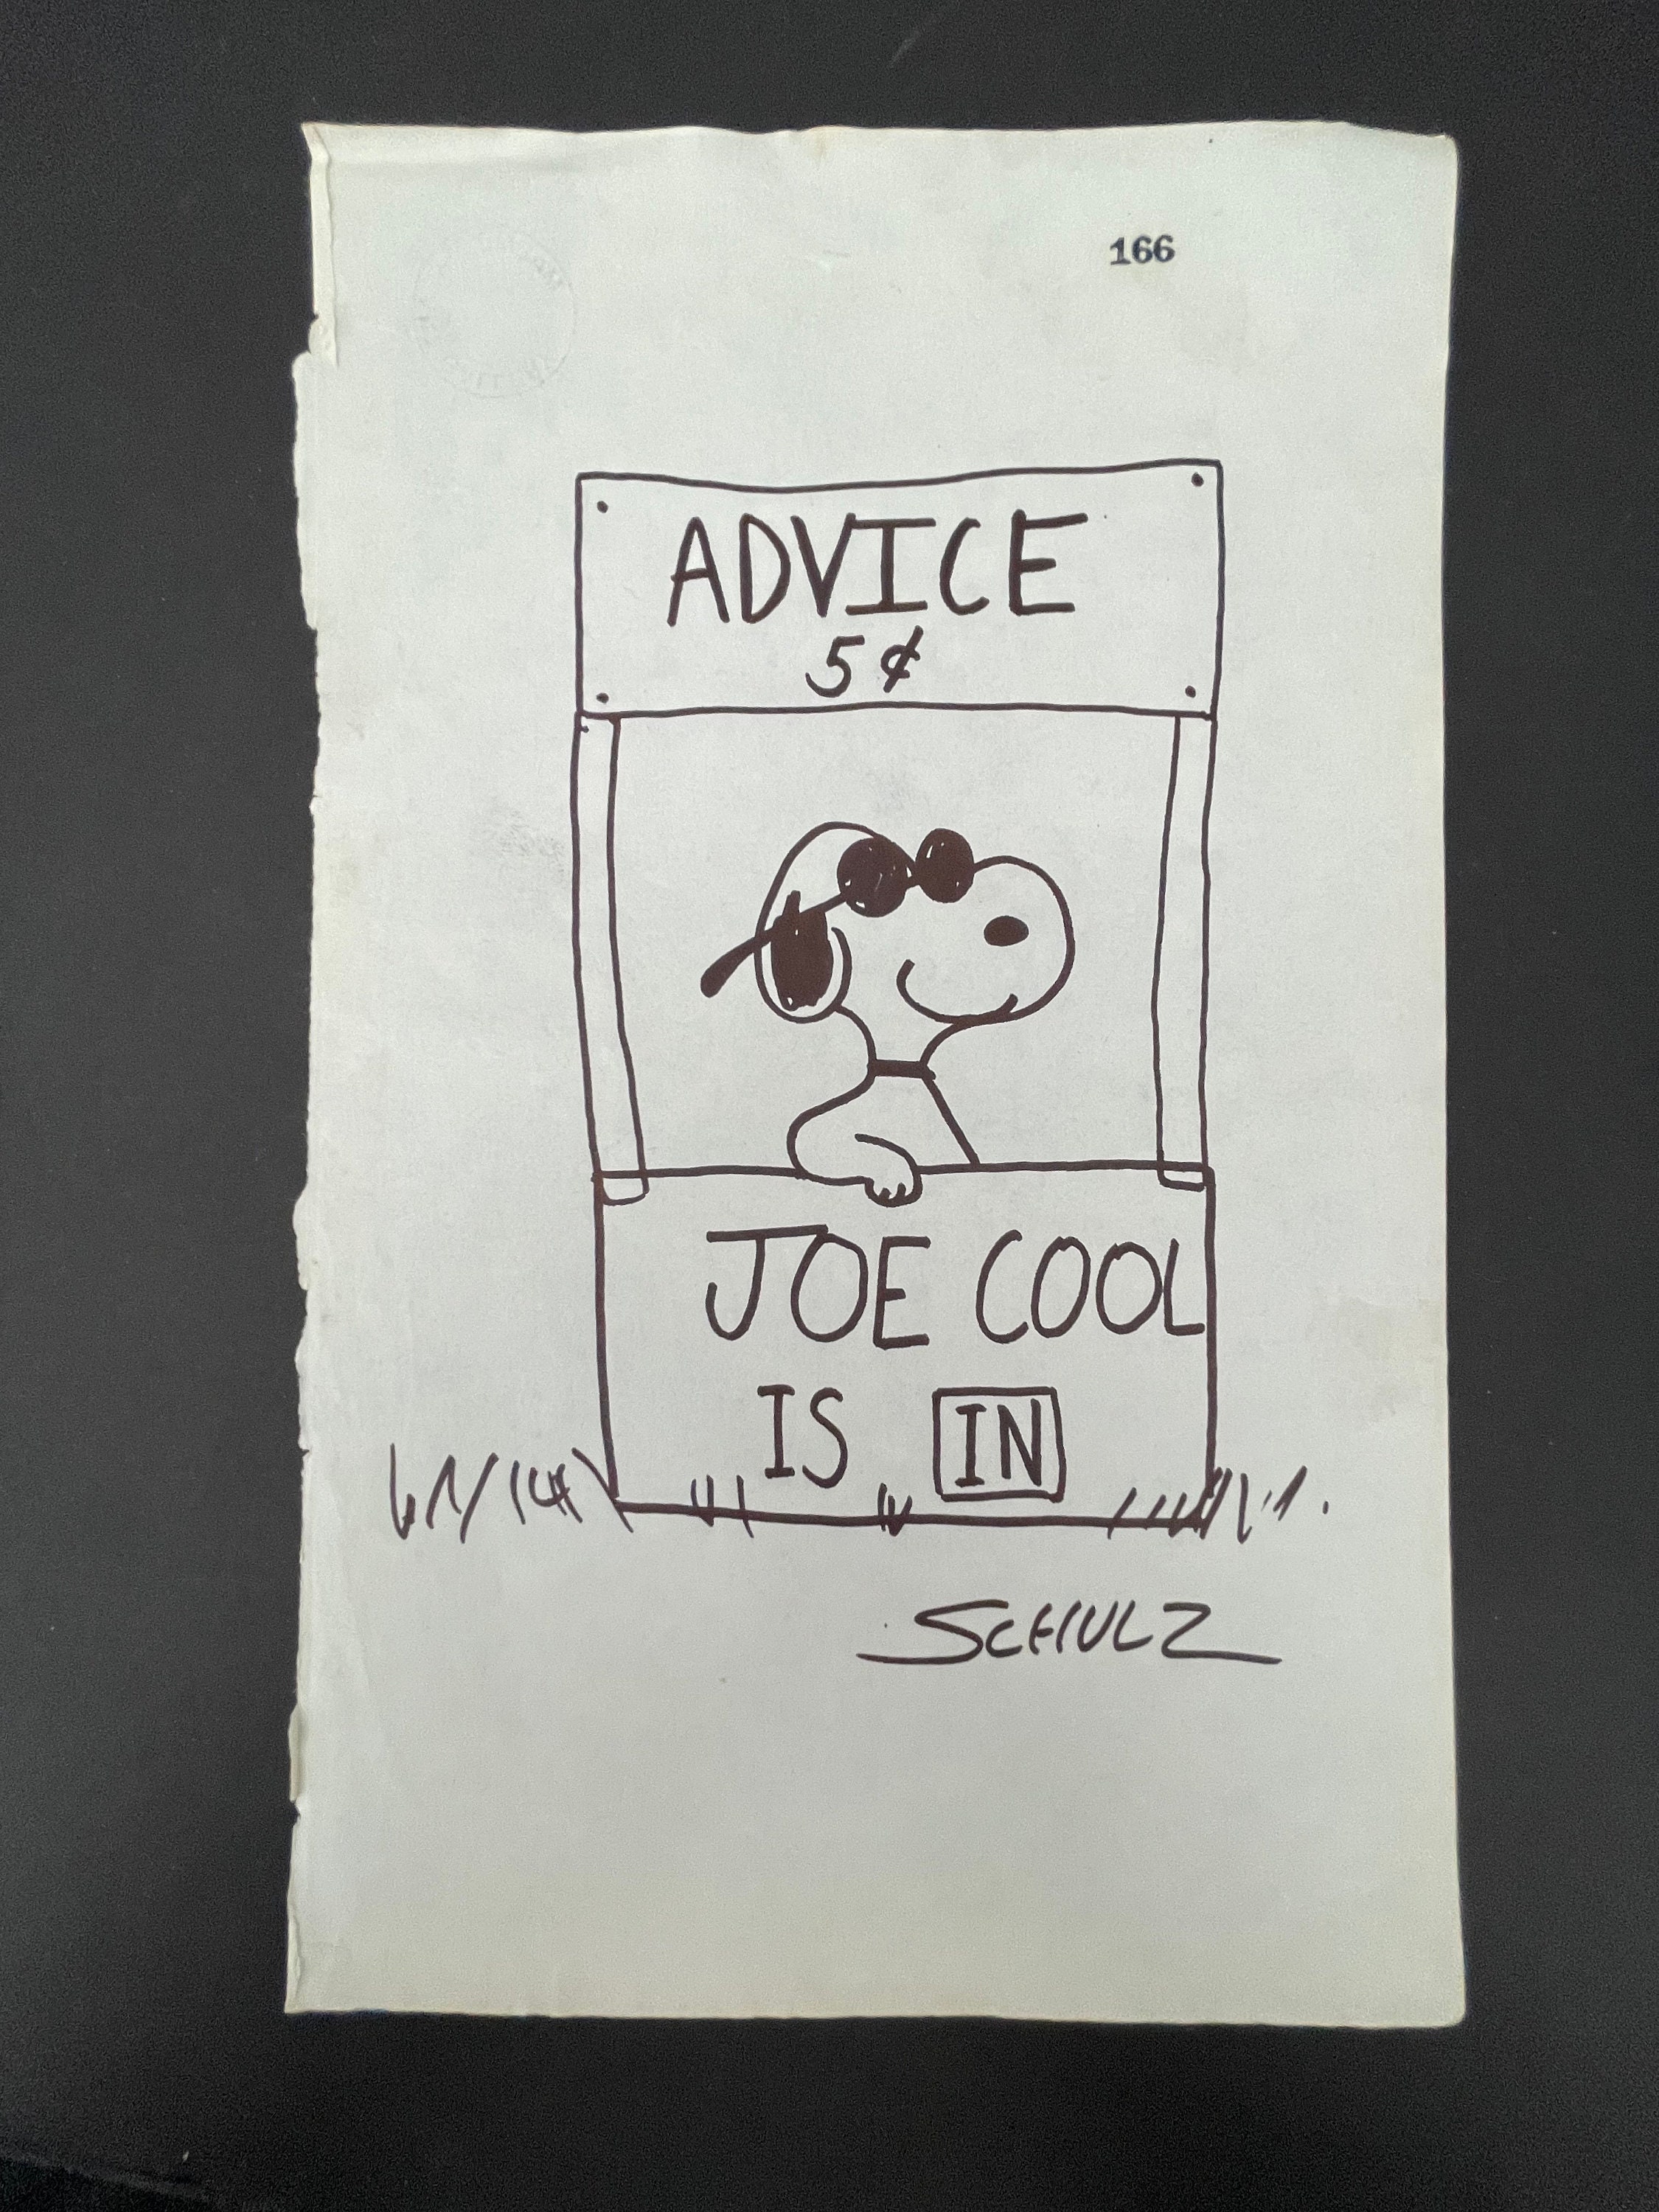 166
ADVICE
5¢
JOE COOL
IS IN
SCHULZ